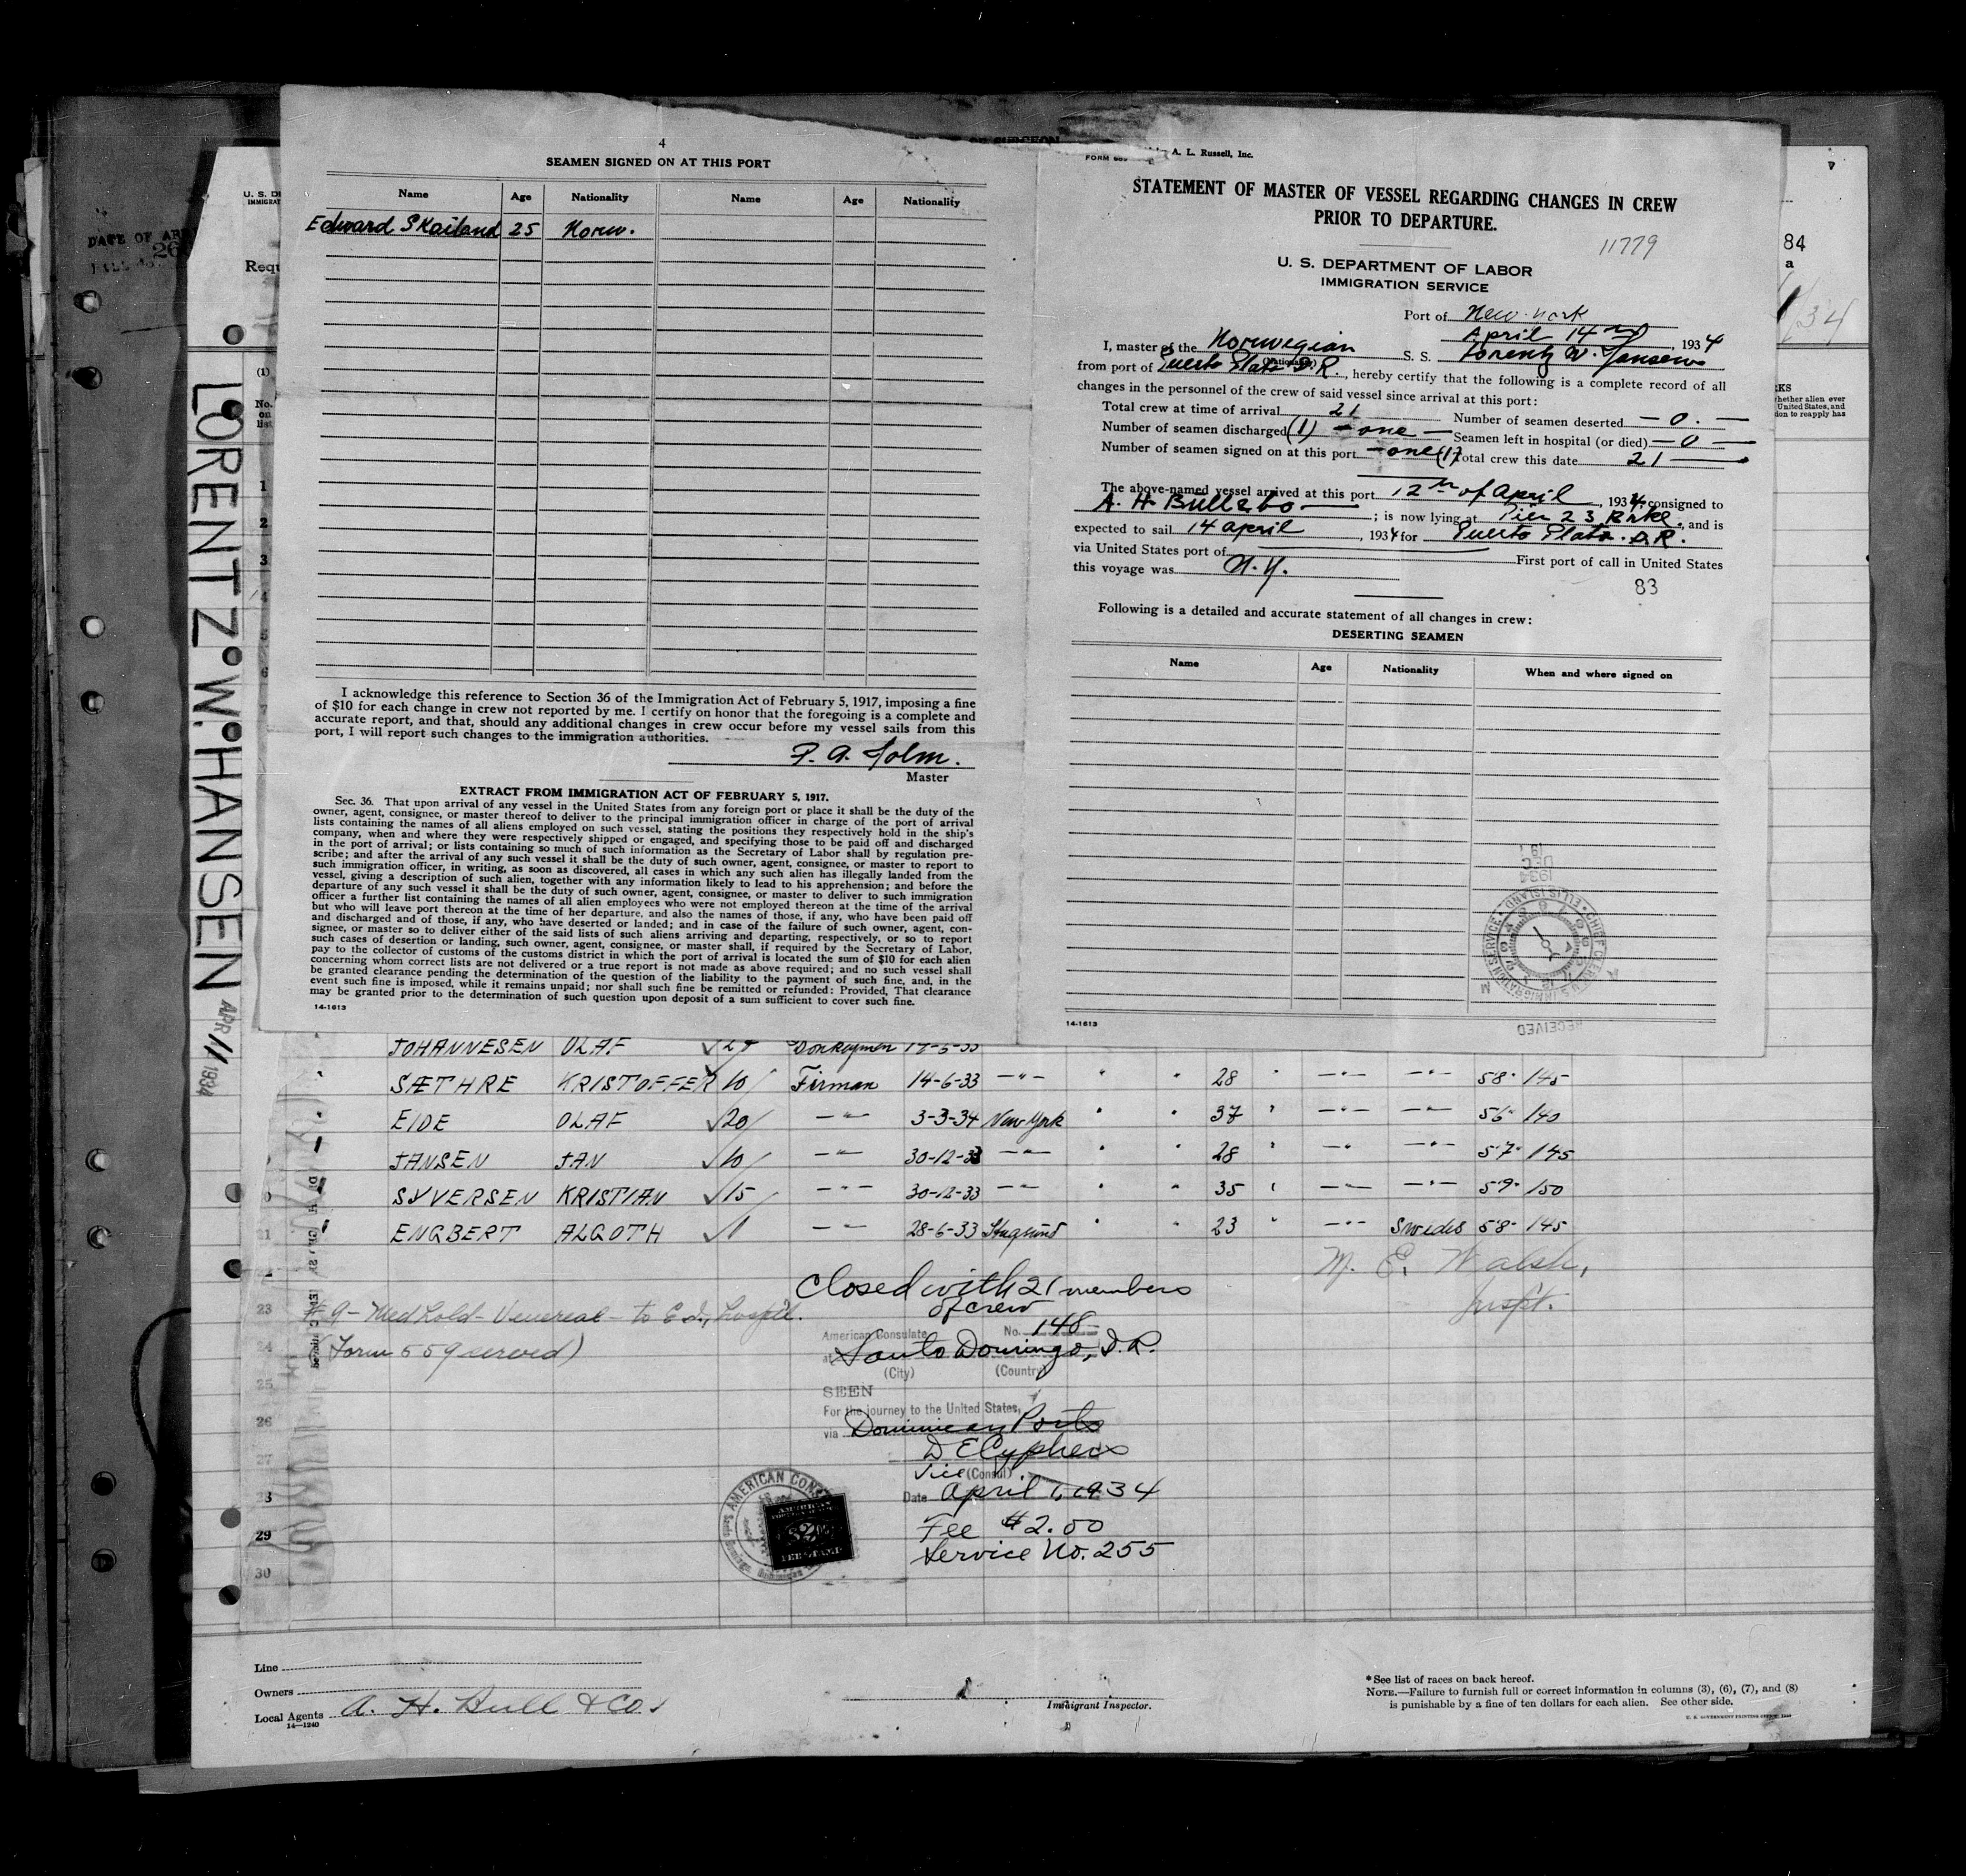 4
SEAMEN SIGNED ON AT THIS PORT
Name Age Nationality Name Age Nationality
Edward Skailand 25 Norw.
I acknowledge this reference to Section 36 of the Immigration Act of February 5, 1917, imposing a fine
of $10 for each change in crew not reported by me. I certify on honor that the foregoing is a complete and
accurate report, and that, should any additional changes in crew occur before my vessel sails from this
port, I will report such changes to the immigration authorities.
P. A. Holm.
Master
EXTRACT FROM IMMIGRATION ACT OF FEBRUARY 5, 1917.
Sec. 36. That upon arrival of any vessel in the United States from any foreign port or place it shall be the duty of the
owner, agent, consignee, or master thereof to deliver to the principal immigration officer in charge of the port of arrival
lists containing the names of all aliens employed on such vessel, stating the positions they respectively hold in the ship's
company, when and where they were respectively shipped or engaged, and specifying those to be paid off and discharged
in the port of arrival; or lists containing so much of such information as the Secretary of Labor shall by regulation pre-
scribe; and after the arrival of any such vessel it shall be the duty of such owner, agent, consignee, or master to report to
such immigration officer, in writing, as soon as discovered, all cases in which any such alien has illegally landed from the
vessel, giving a description of such alien, together with any information likely to lead to his apprehension; and before the
departure of any such vessel it shall be the duty of such owner, agent, consignee, or master to deliver to such immigration
officer a further list containing the names of all alien employees who were not employed thereon at the time of the arrival
but who will leave port thereon at the time of her departure, and also the names of those, if any, who have been paid off
and discharged and of those, if any, who have deserted or landed; and in case of the failure of such owner, agent, con-
signee, or master so to deliver either of the said lists of such aliens arriving and departing, respectively, or so to report
such cases of desertion or landing, such owner, agent, consignee, or master shall, if required by the Secretary of Labor,
pay to the collector of customs of the customs district in which the port of arrival is located the sum of $10 for each alien
concerning whom correct lists are not delivered or a true report is not made as above required; and no such vessel shall
be granted clearance pending the determination of the question of the liability to the payment of such fine, and, in the
event such fine is imposed, while it remains unpaid; nor shall such fine be remitted or refunded: Provided, That clearance
may be granted prior to the determination of such question upon deposit of a sum sufficient to cover such fine.
14-1613
A. L. Russell, Inc.
STATEMENT OF MASTER OF VESSEL REGARDING CHANGES IN CREW
PRIOR TO DEPARTURE.
11779
U. S. DEPARTMENT OF LABOR
IMMIGRATION SERVICE
Port of New York
April 14th, 1934
I, master of the Norwegian S. S. Lorentz W. Hansen
from port of Puerto Plata D.R., hereby certify that the following is a complete record of all
changes in the personnel of the crew of said vessel since arrival at this port:
Total crew at time of arrival 21 Number of seamen deserted — 0. —
Number of seamen discharged (1) — one — Seamen left in hospital (or died) — 0 —
Number of seamen signed on at this port — one (1) Total crew this date 21
The above-named vessel arrived at this port 12th of April, 1934, consigned to
A. H. Bull & Co ; is now lying at Pier 23 Bkl., and is
expected to sail 14 april, 1934 for Puerto Plata. D.R.
via United States port of First port of call in United States
this voyage was N.Y.
83
Following is a detailed and accurate statement of all changes in crew:
DESERTING SEAMEN
Name Age Nationality When and where signed on
RECEIVED
CHIEF CLERK U.S. IMMIGRATION SERVICE • ELLIS ISLAND
DEC 1934
14-1613
LORENTZ W. HANSEN APR 11 1934
84
a
34
JOHANNESEN OLAF Donkeymen
SÆTHRE KRISTOFFER 10 Firman 14-6-33 —"— " " 28 " —"— —"— 5'8" 145
EIDE OLAF 20 —"— 3-3-34 New-York " " 37 " —"— —"— 5'6" 140
JANSEN JAN 10 —"— 30-12-33 —"— " " 28 " —"— —"— 5'7" 145
SYVERSEN KRISTIAN 15 —"— 30-12-33 —"— " " 35 " —"— —"— 5'9" 150
ENGBERT ALGOTH 1 —"— 28-6-33 " " 23 " —"— Swedis 5'8" 145
M. E. Walsh,
Inspt.
Closed with 21 members
of crew
#9 - Med hold - Venereal - to E. I., hospil.
(Form 559 served)
American Consulate No. 148
at Santo Domingo, D.R.
(City) (Country)
SEEN
For the journey to the United States,
via Dominican Ports
D E Cyphers
Vice (Consul)
Date April 1, 1934
Fee $2.00
Service No. 255
AMERICAN
23
24
25
26
27
28
29
30
Line
Owners
Local Agents A. H. Bull & Co.
14—1240
Immigrant Inspector.
*See list of races on back hereof.
NOTE.—Failure to furnish full or correct information in columns (3), (6), (7), and (8)
is punishable by a fine of ten dollars for each alien. See other side.